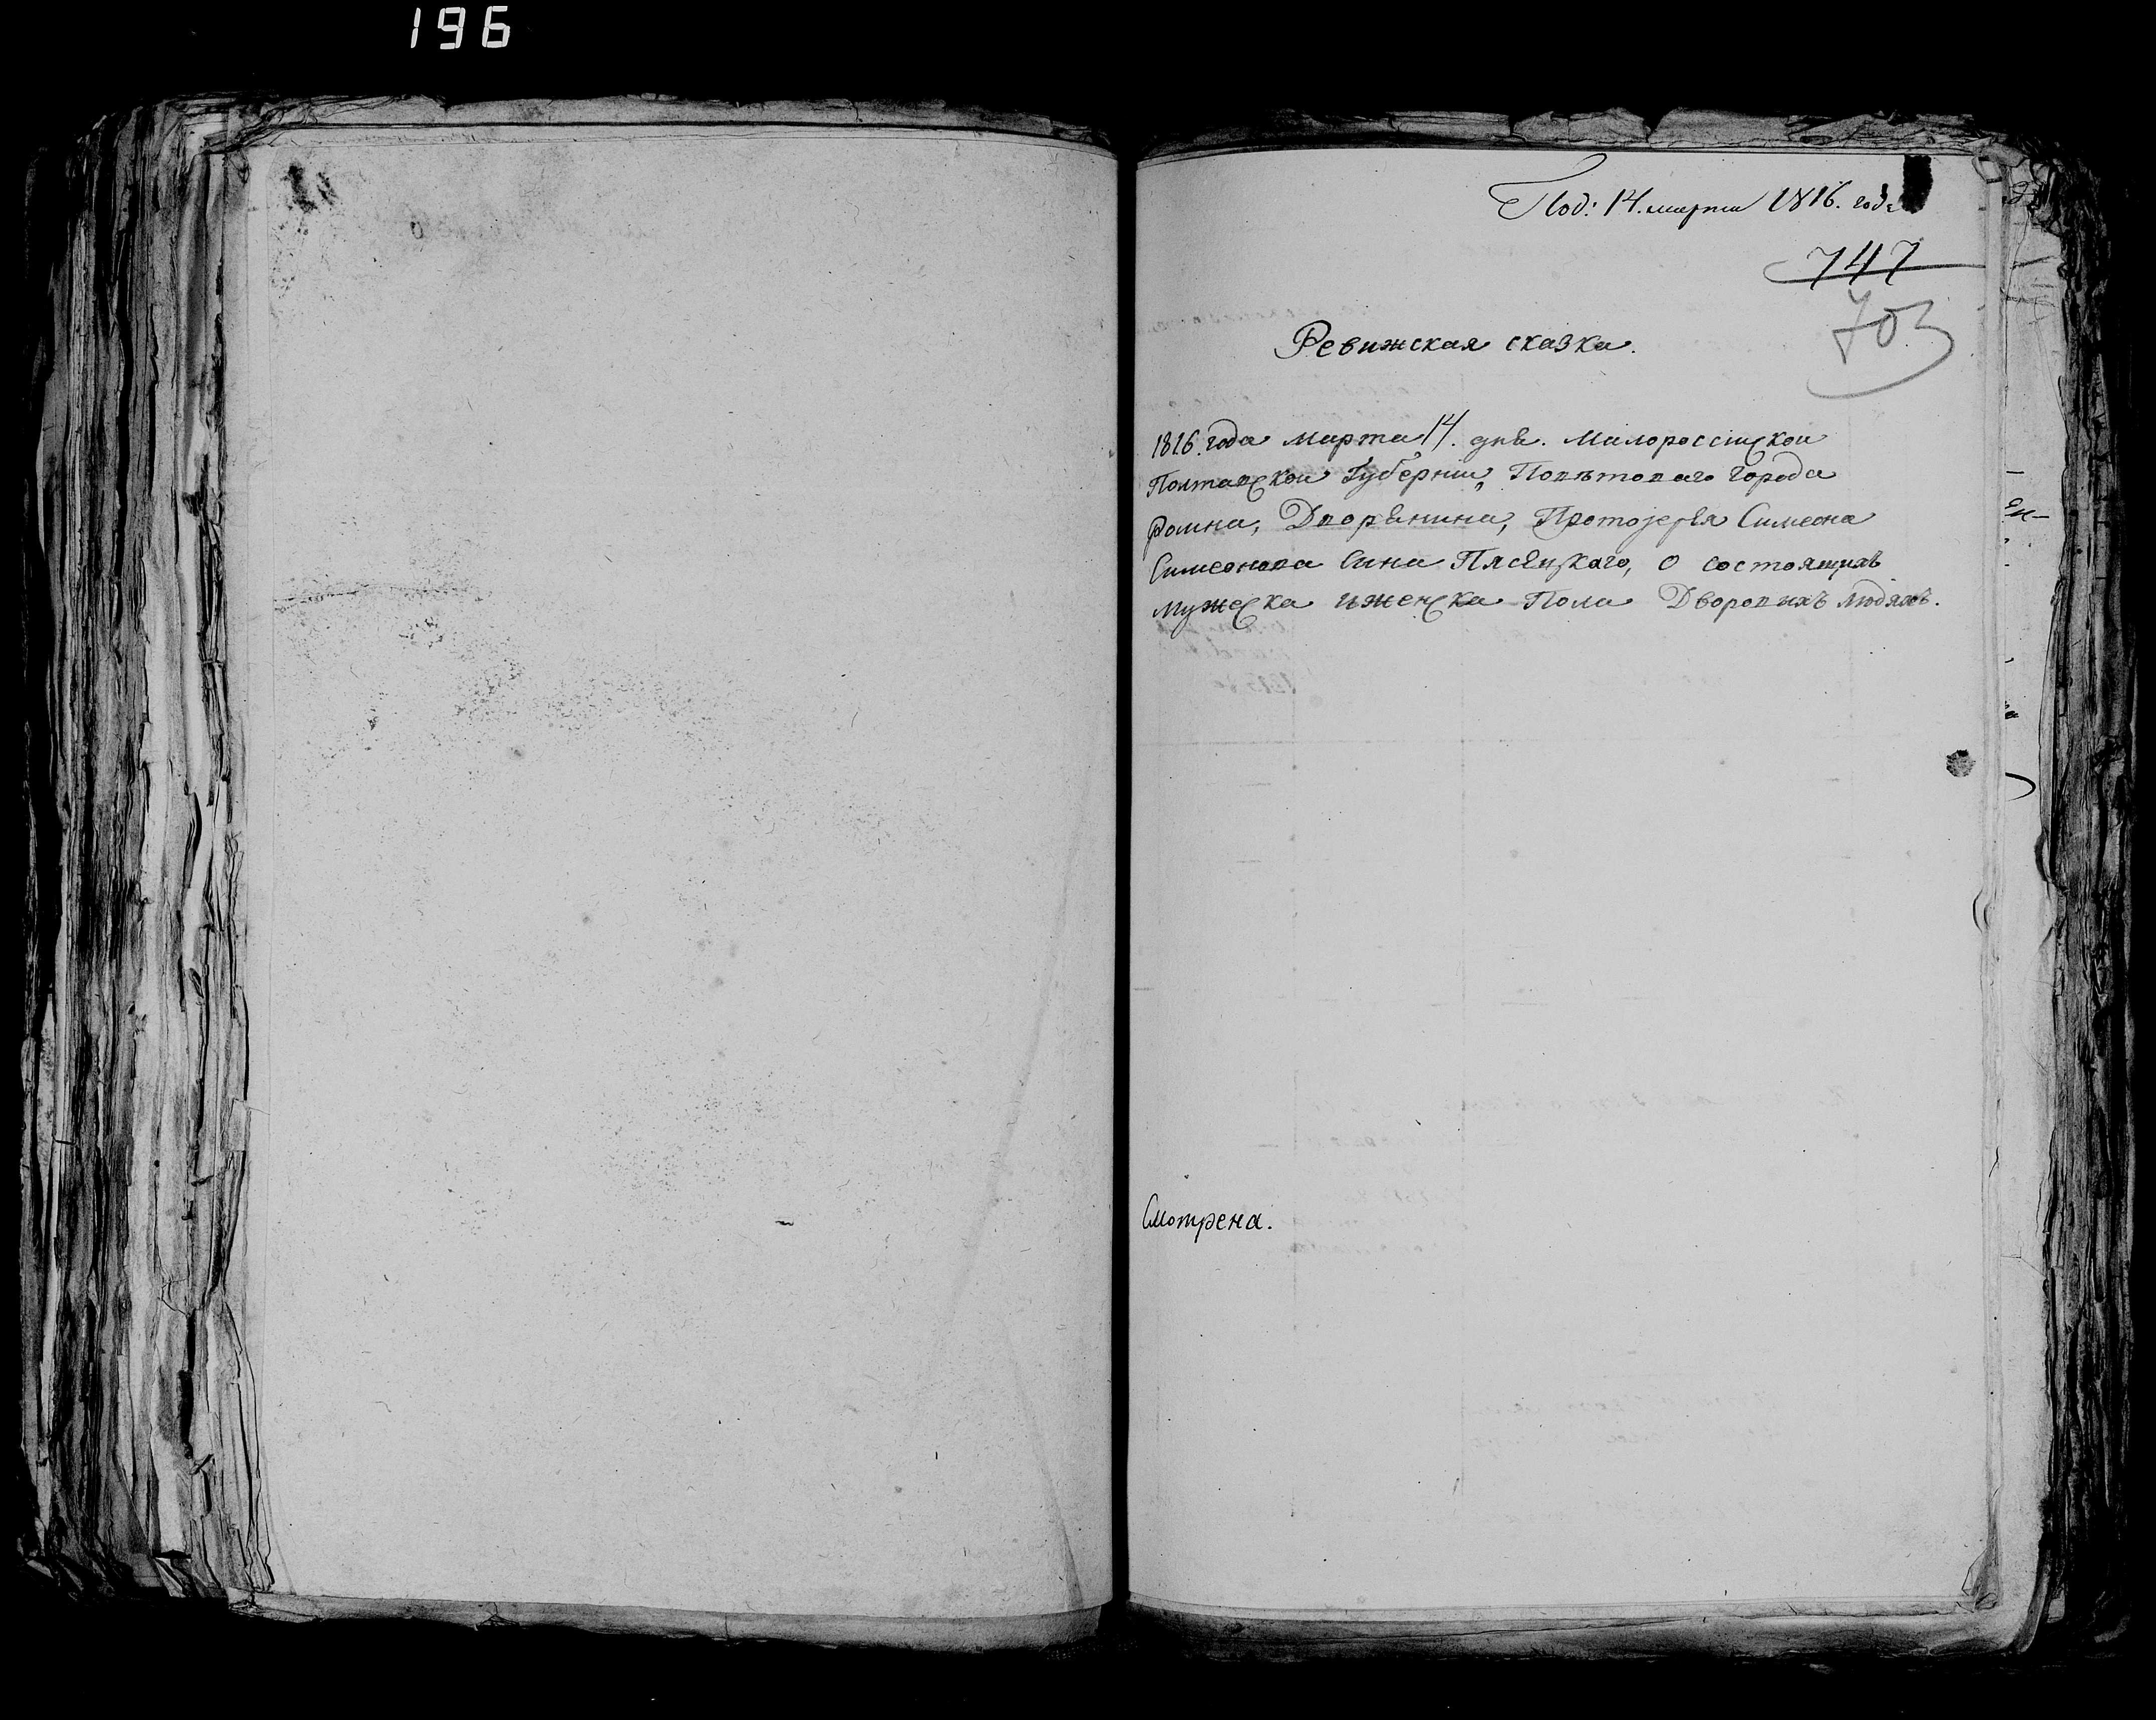 196
Под: 14. марта 1816. года
747
703
Ревижская сказка.
1816. года марта 14. дня. Малороссійской
Полтавской Губерніи, Повѣтоваго города
Ромна, Дворянина, Протоіерея Симеона
Симеонова Сына Пясецкаго, о состоящихъ
мужеска и женска Пола Дворовыхъ людяхъ.
Смотрена.